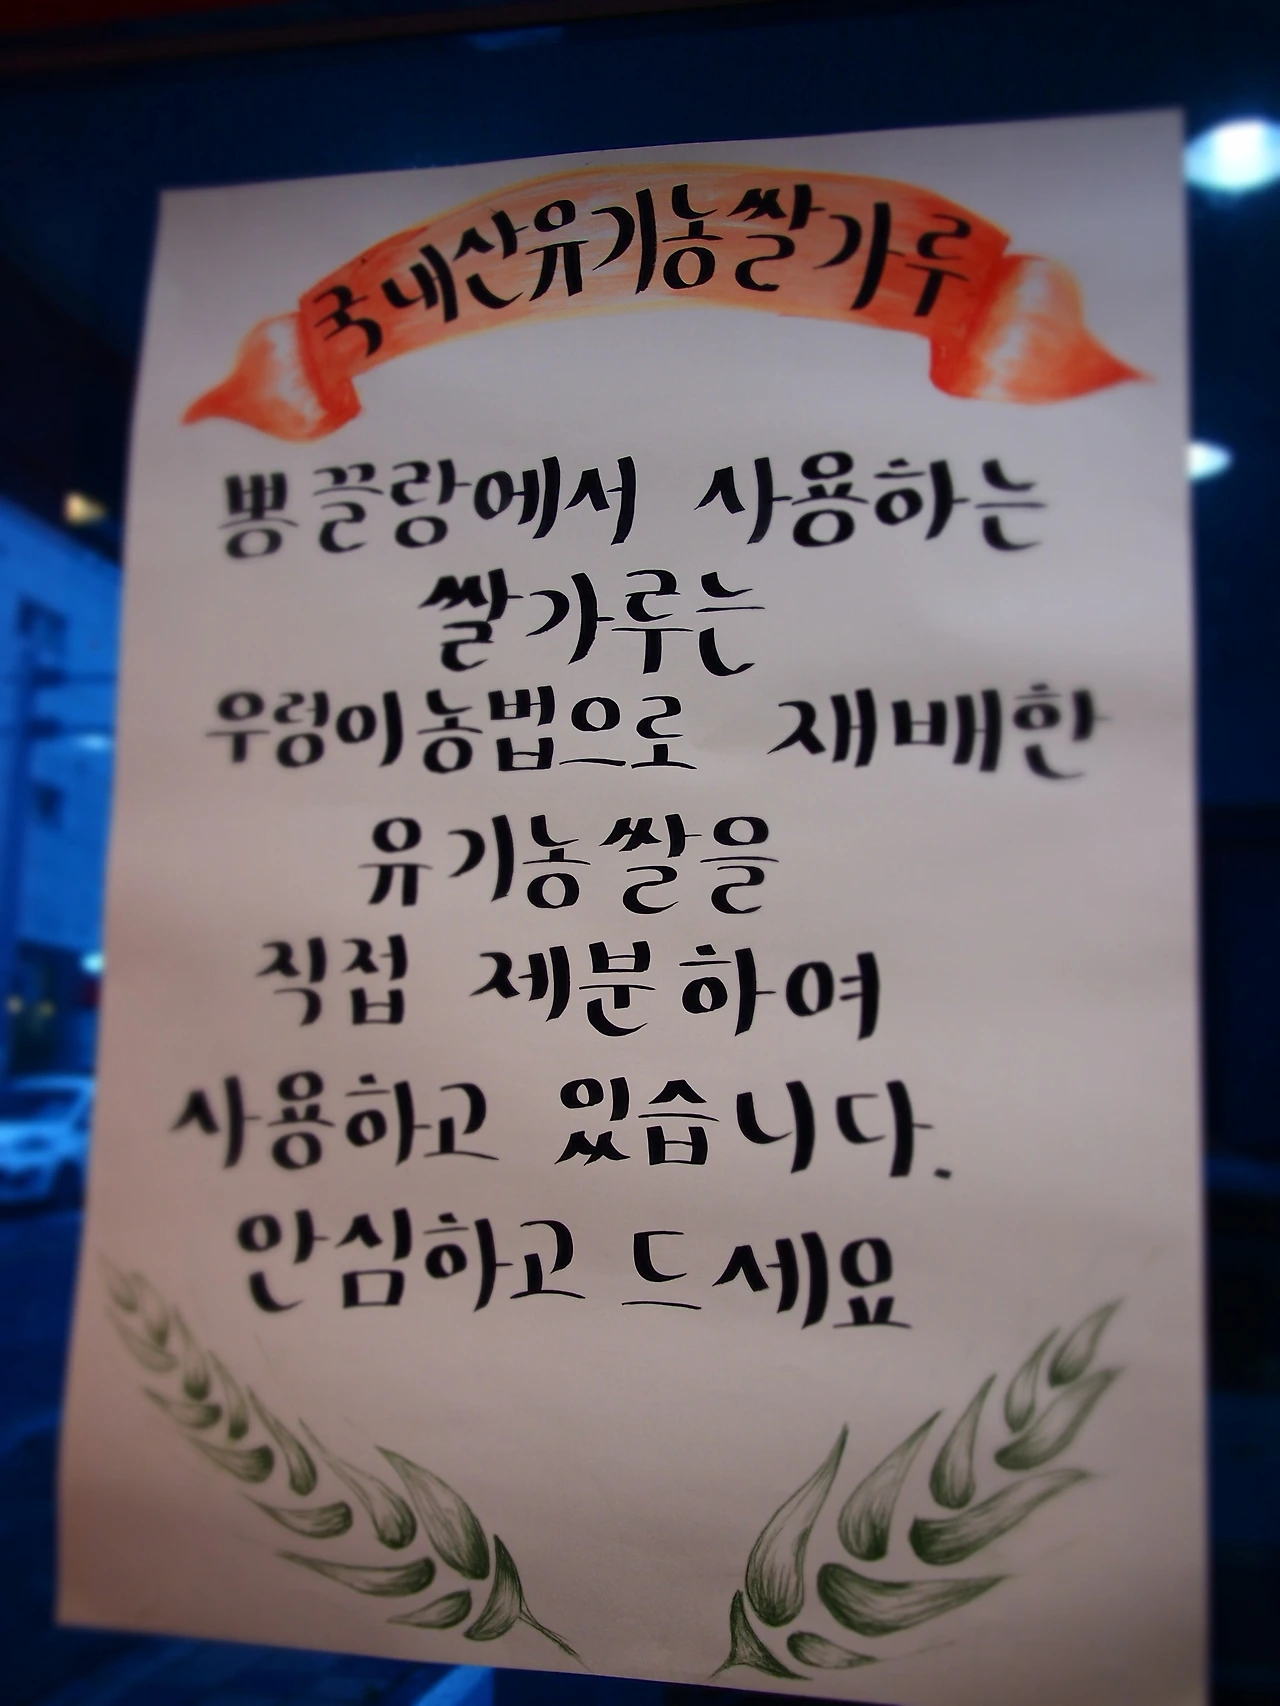 국내산유기농쌀가루
뽕끌랑에서 사용하는
쌀가루는
우렁이농법으로 재배한
유기농쌀을
직접 제분하여
사용하고 있습니다.
안심하고 드세요